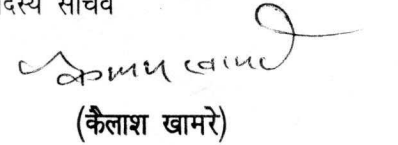 सदस्य सचिव
(कैलाश खामरे)